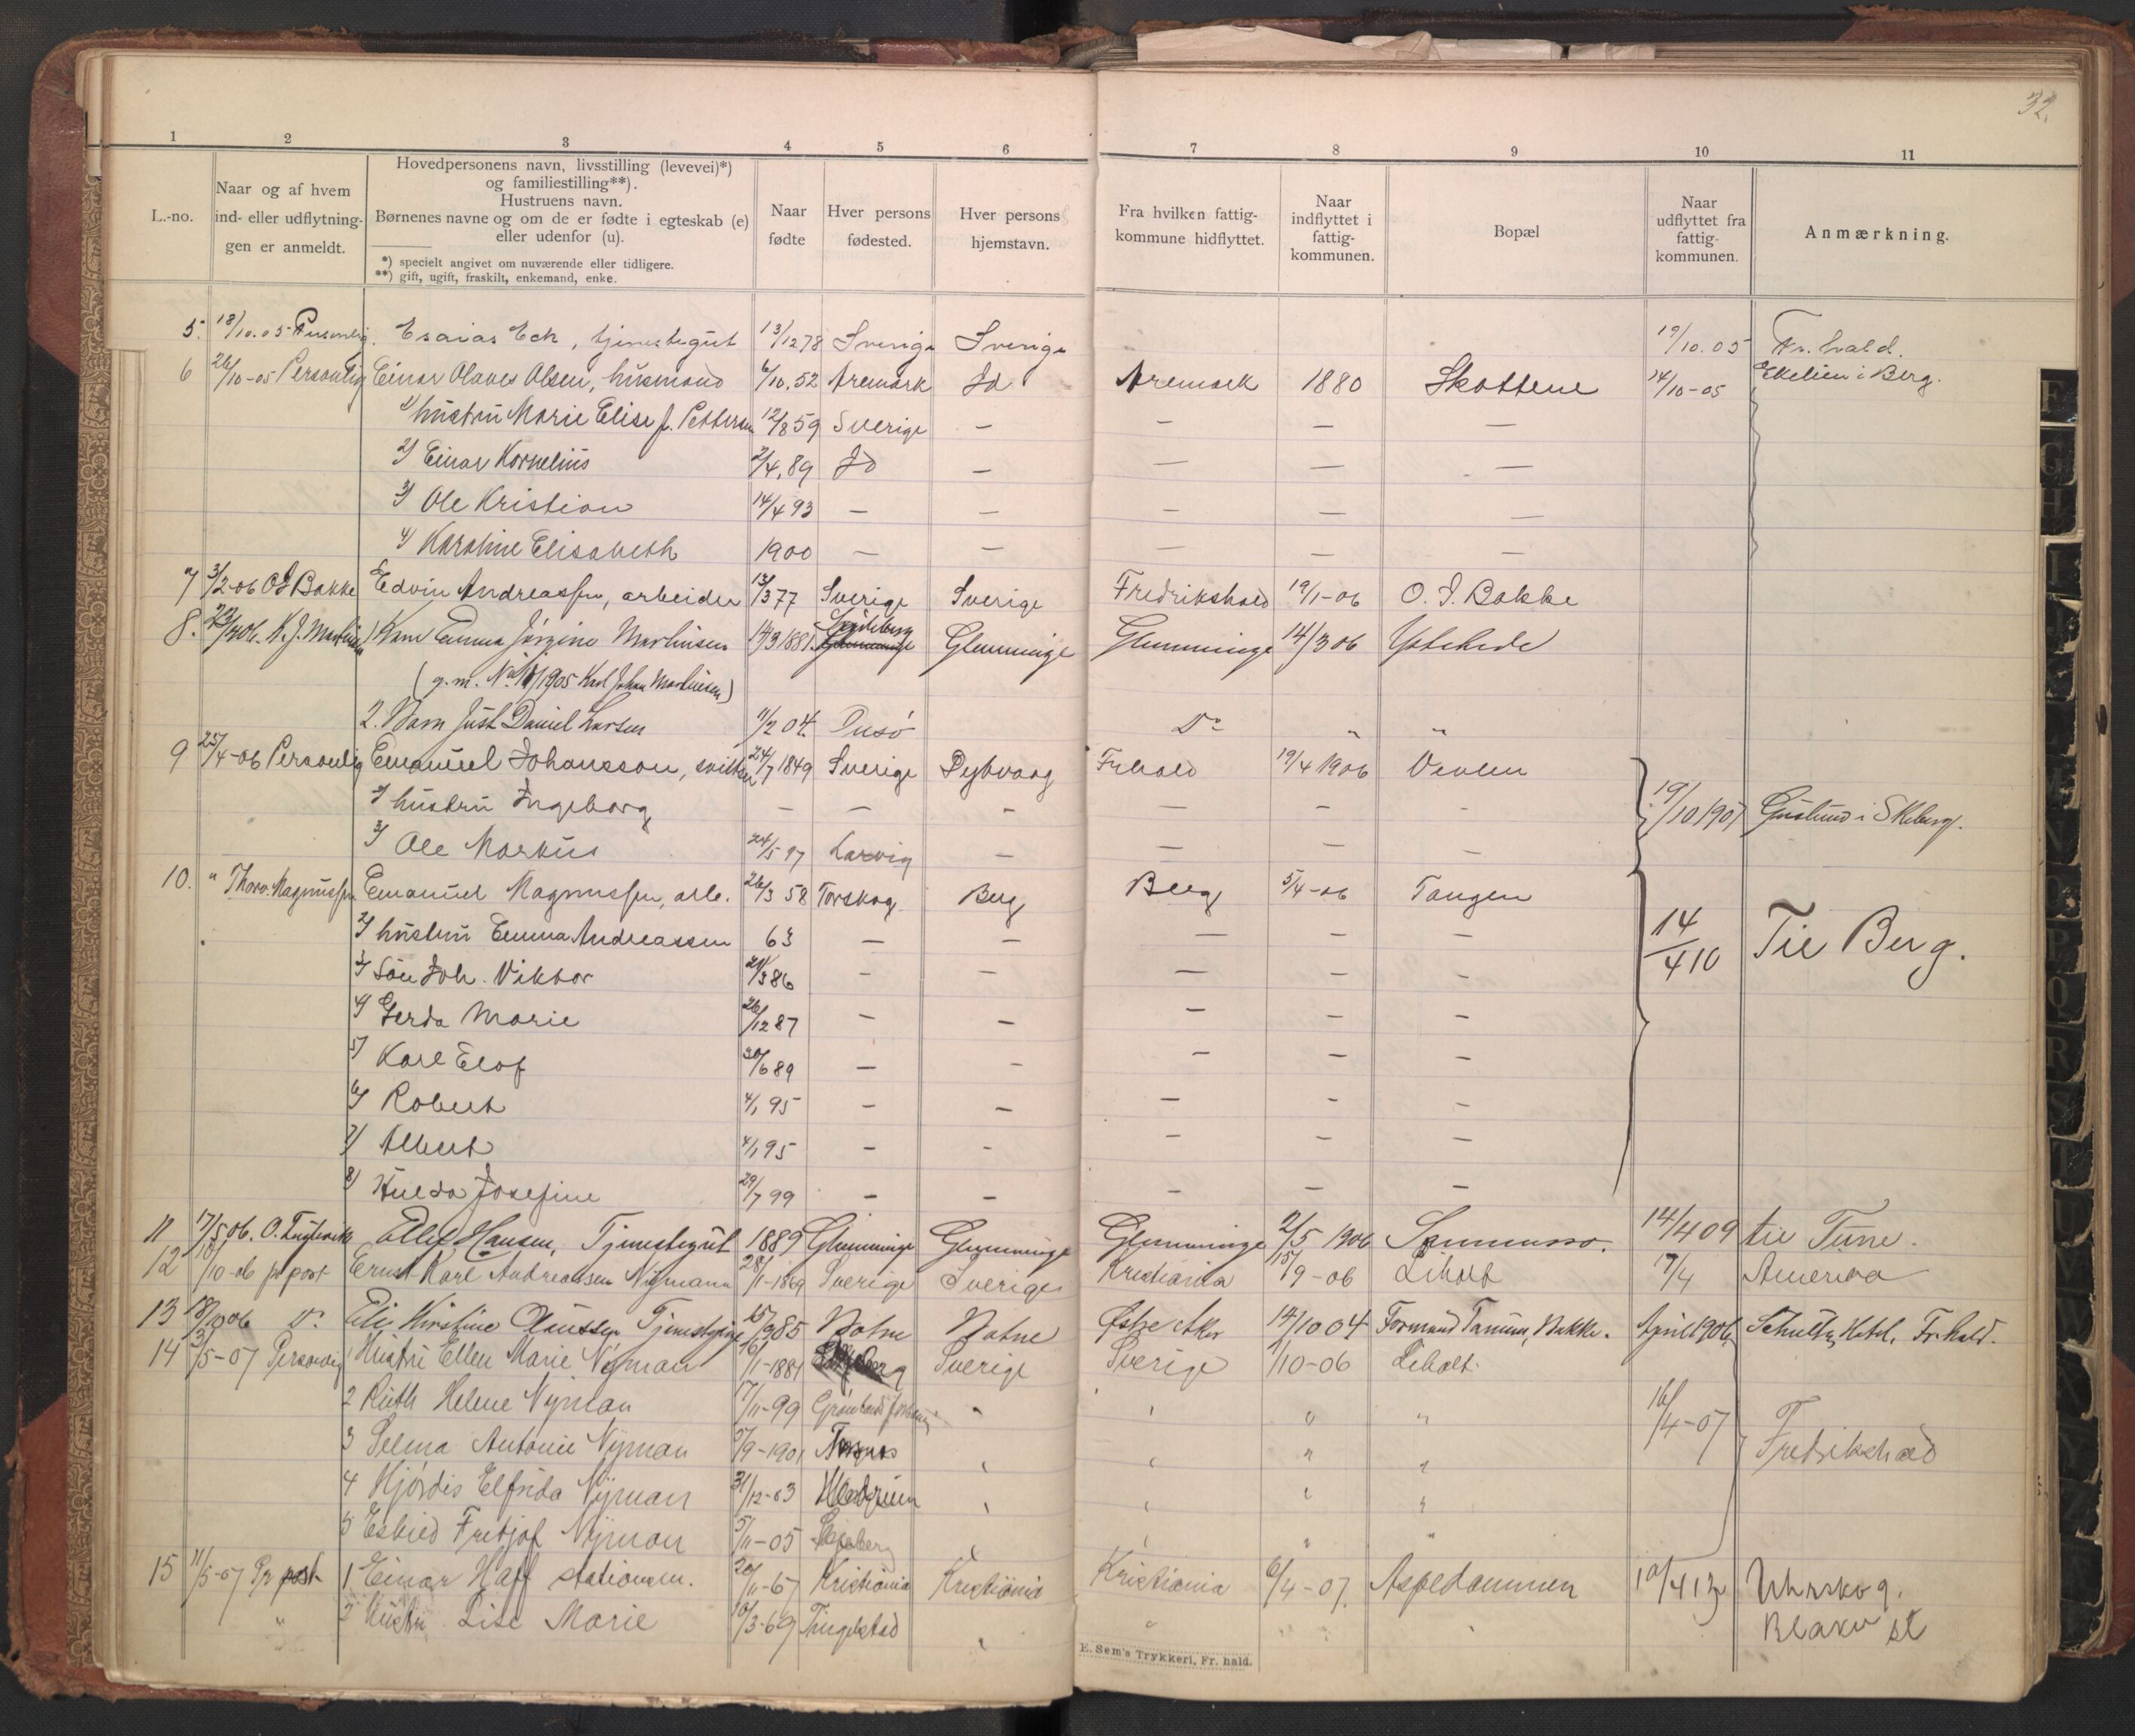 32.
1 2 3 4 5 6 7 8 9 10 11
L.-no.
Naar og af hvem
ind- eller udflytning-
gen er anmeldt.
Hovedpersonens navn, livsstilling (levevei)*)
og familiestilling**).
Hustruens navn.
Børnenes navne og om de er fødte i egteskab (e)
eller udenfor (u).
*) specielt angivet om nuværende eller tidligere.
**) gift, ugift, fraskilt, enkemand, enke.
Naar
fødte
Hver persons
fødested.
Hver persons
hjemstavn.
Fra hvilken fattig-
kommune hidflyttet.
Naar
indflyttet i
fattig-
kommunen.
Bopæl
Naar
udflyttet fra
fattig-
kommunen.
Anmærkning.
5. 18/10.05 Personlig. Esaias Eck, tjenestegut 13/12 78 Sverige Sverige 19/10.05 Fr.hald.
6 26/10-05 Personlig Einar Olaves Olsen, husmand 6/10.52 Aremark Id Aremark 1880 Skottene 14/10-05 Ekelien i Berg.
1) hustru Marie Elise f. Pettersen 12/8 59 Sverige — — — —
2) Einar Kornelius 2/4.89 Id — — — —
3) Ole Kristian 14/4 93 — — — — —
4) Karoline Elisabeth 1900 — — — — —
7 3/2-06 O J Bakke Edvin Andreassen, arbeider 13/3 77 Sverige Sverige Fredrikshald 19/1-06 O. J. Bakke
8. K. J. Martinsen Emma Jørgine Martinsen 14/3 1881 Glemminge Glemminge Glemminge 14/3 06 Ystehede
(g.m. 1905 Karl Johan Martinsen)
2. Barn Just Daniel Larsen 11/2 04. Onsø Do " "
9 25/4-06 Personlig Emanuel Johansson, 24/7 1849 Sverige Dybvaag Frhald 19/4 1906 Venlen
2) hustru Ingeborg — — — — — - 19/10 1907 i Skeberg.
3) Ole Markus 24/5 97 Larvig — — — —
10. " Thorv. Magnussen Emanuel Magnussen, arb. 26/3 58 Torskog Berg Berg 5/4-06 Tangen
2) hustru Emma Andreassen 63 — — — — — 14/4 10 Til Berg.
3) Søn Joh. Viktor 21/3 86 — — — — —
4) Gerda Marie 26/12 87 — — — — —
5) Karl Elof 30/6 89 — — — — —
6) Robert 4/1 95 — — — — —
7) Albert 4/1 95 — — — — —
8) Hulda Josefine 29/7 99 — — — — —
11 17/5 06. O. Elles Hansen, Tjenestegut 1889 Glemminge Glemminge Glemminge 2/5 1906 14/4 09 til Tune.
12 10/10-06 pr post Ernst Karl Andreassen Nymann 28/11-1869 Sverige Sverige Kristiania 15/9-06 Liholt 7/4 Amerika
13 18/10 06 Do Eli Kirstine Clausson Tjenestepige 15/9 85 Østre Aker 14/10 04 Formand Tanum, Bakke. April 1906 Schultz Hotel, Fr.hald.
14 3/5-07 Personlig 1 Hustru Ellen Marie Nyman 16/11-1881 Sverige Sverige 1/10-06 Liholt.
2 Ruth Helene Nyman 17/11-99 " " 16/4-07 Fredrikshald
3 Selma Antonie Nyman 5/9-1901 " "
4 Hjørdis Elfrida Nyman 31/12-03 " "
5 Eskied Fretjof Nyman 5/11-05 Skjeberg " "
15 11/5-07 Pr post 1 Einar Haff stationsm. 20/11-67 Kristiania Kristiania Kristiania 6/4-07. Aspedammen 10/4 13 Urskog.
" 2 Hustru Lise Marie 10/3-69 Tingelstad " Blaker st
E. Sem's Trykkeri, Fr. hald.